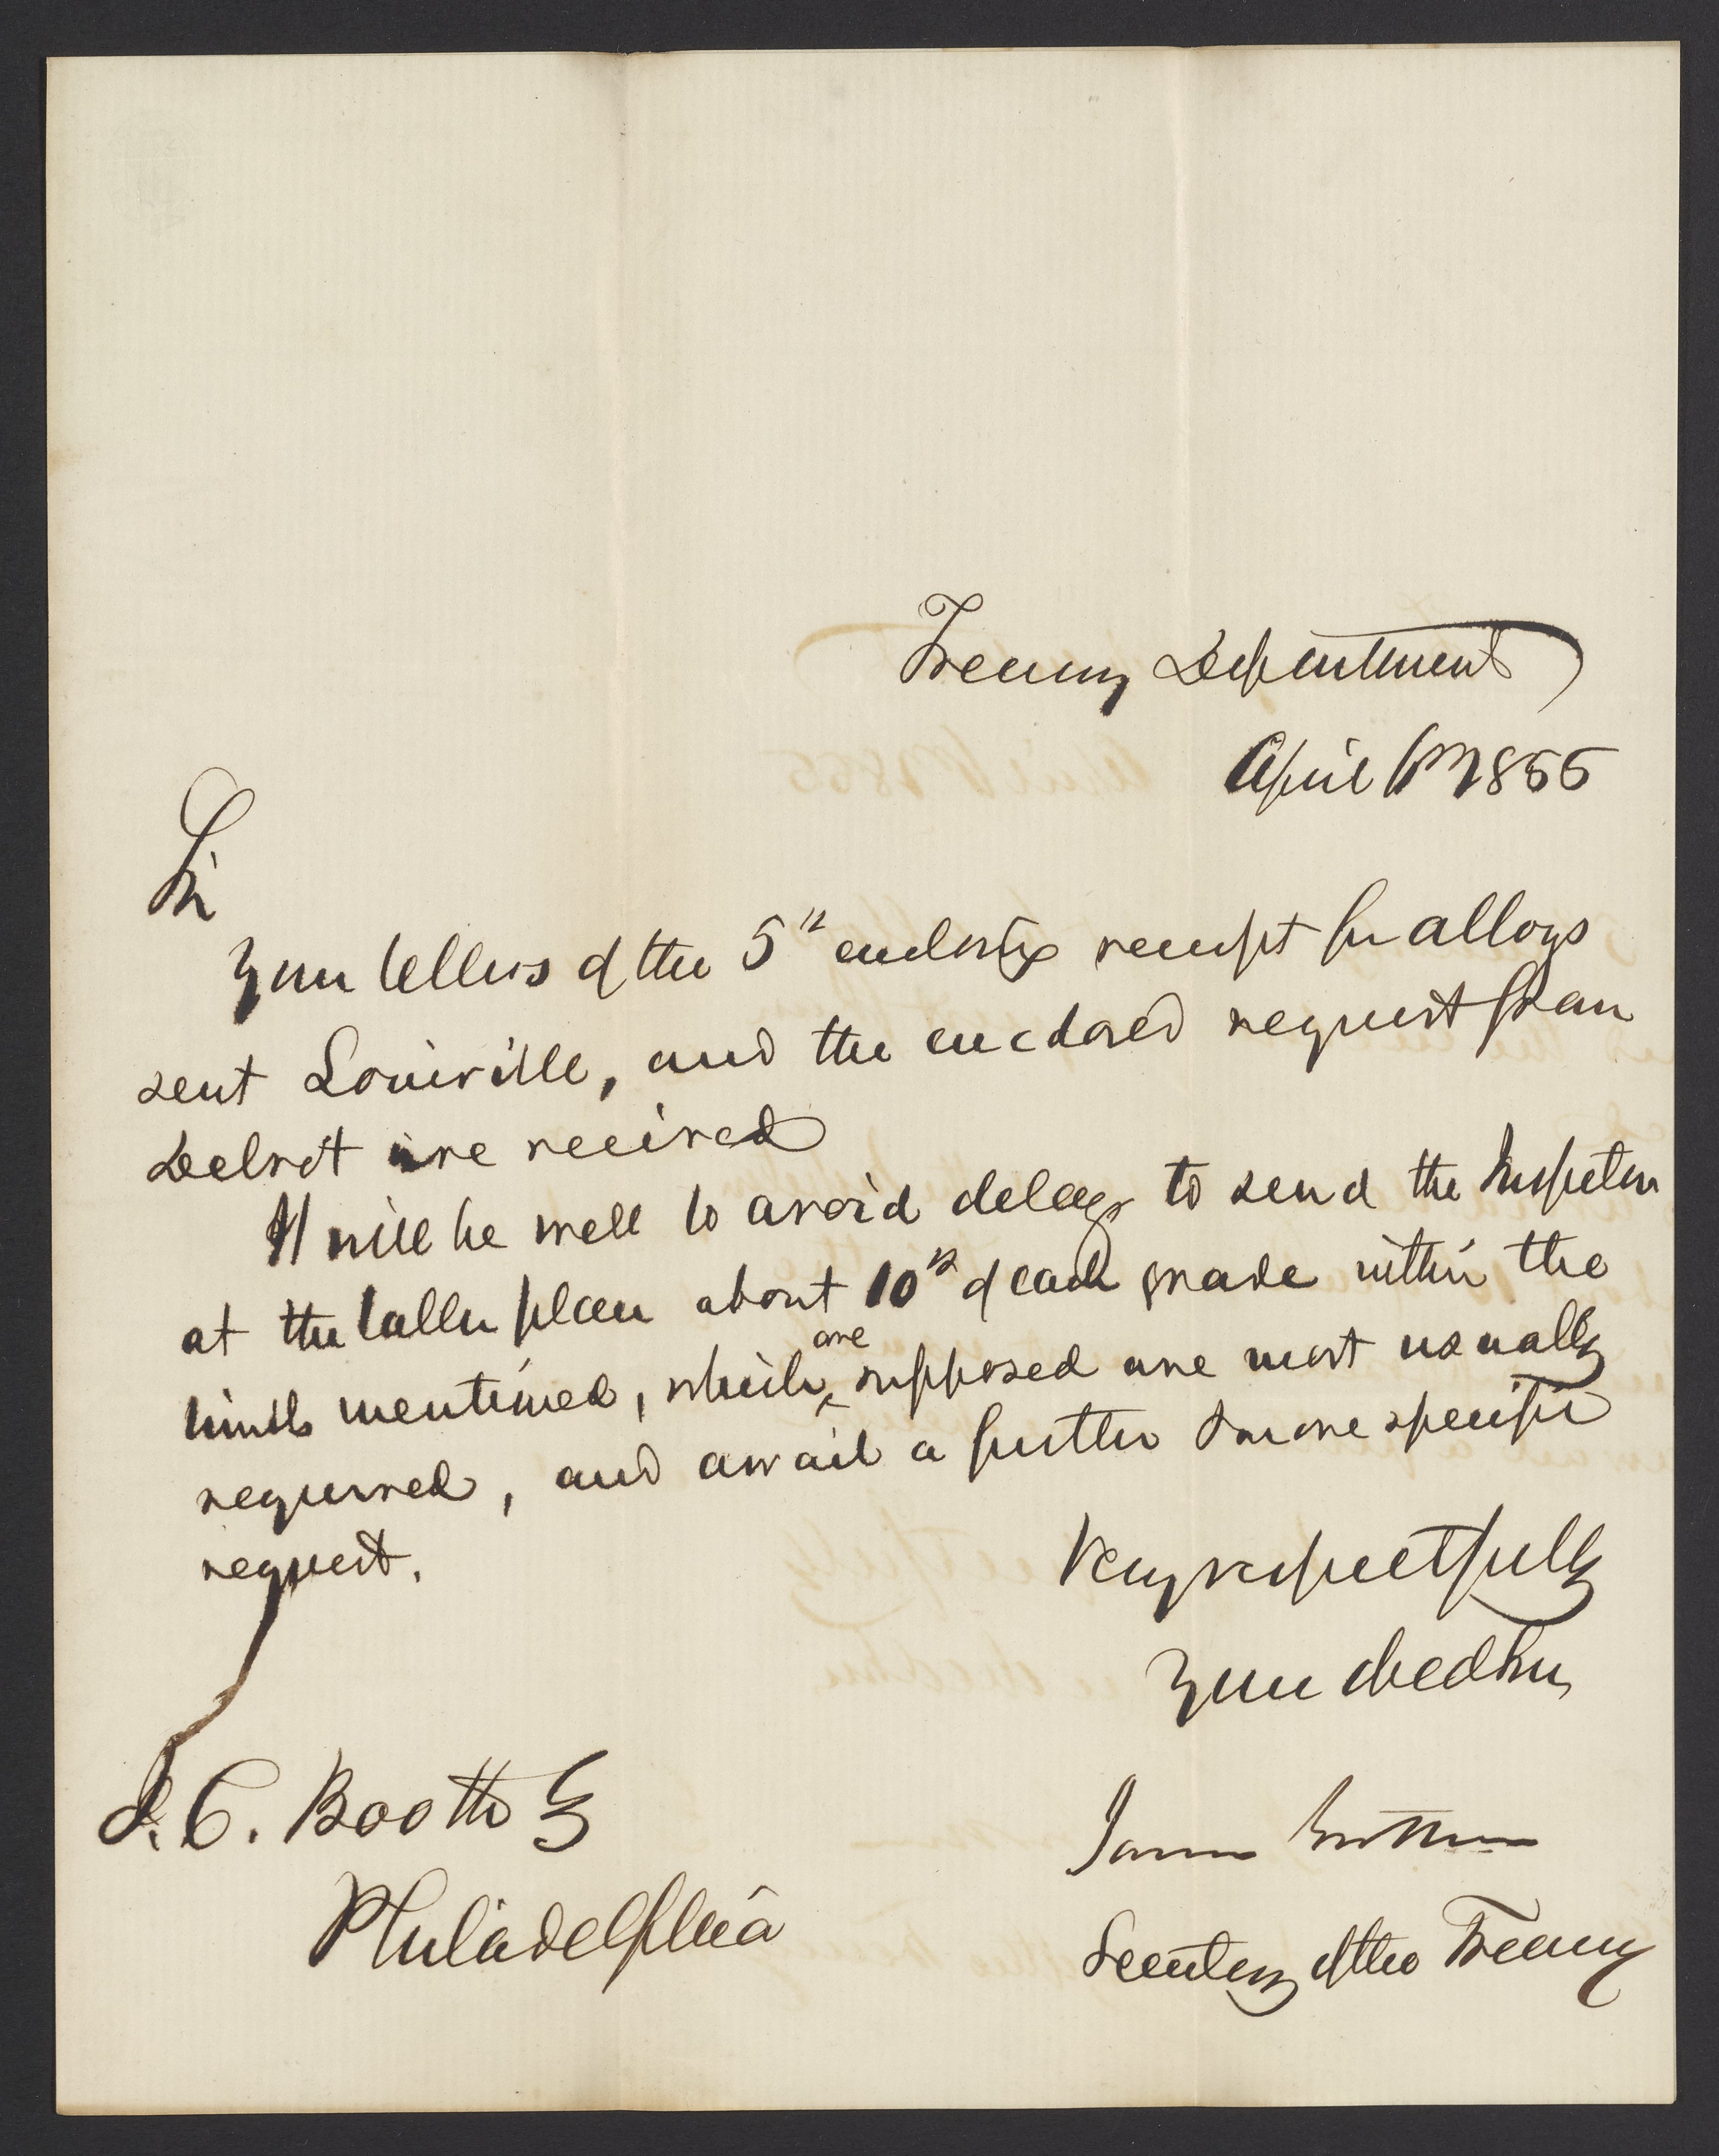 Treasury Department
April 6th 1855
Sir
Your letters of the 5th enclosing receipt for alloys
sent Louisville, and the enclosed request from
Detroit are received
It will be well to avoid delay to send the Inspector
at the latter place about 10 of each grade within the
limits mentioned, which are supposed are most usually
required, and await a further & more specific
request.
Very respectfully
Your obed Srv
J. C. Booth Esq
James Guthrie
Philadelphia
Secretary of the Treasury